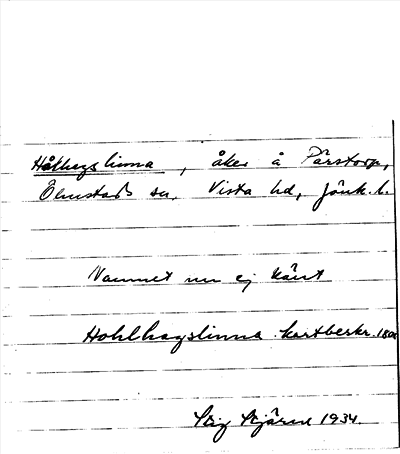 Hålhagslinna, åker å Pärstorp,
Ölmstad sn. Vista hd, Jönk. l.
Namnet nu ej känt
Hohlhagslinna kartbeskr. 180
Stig 1934.